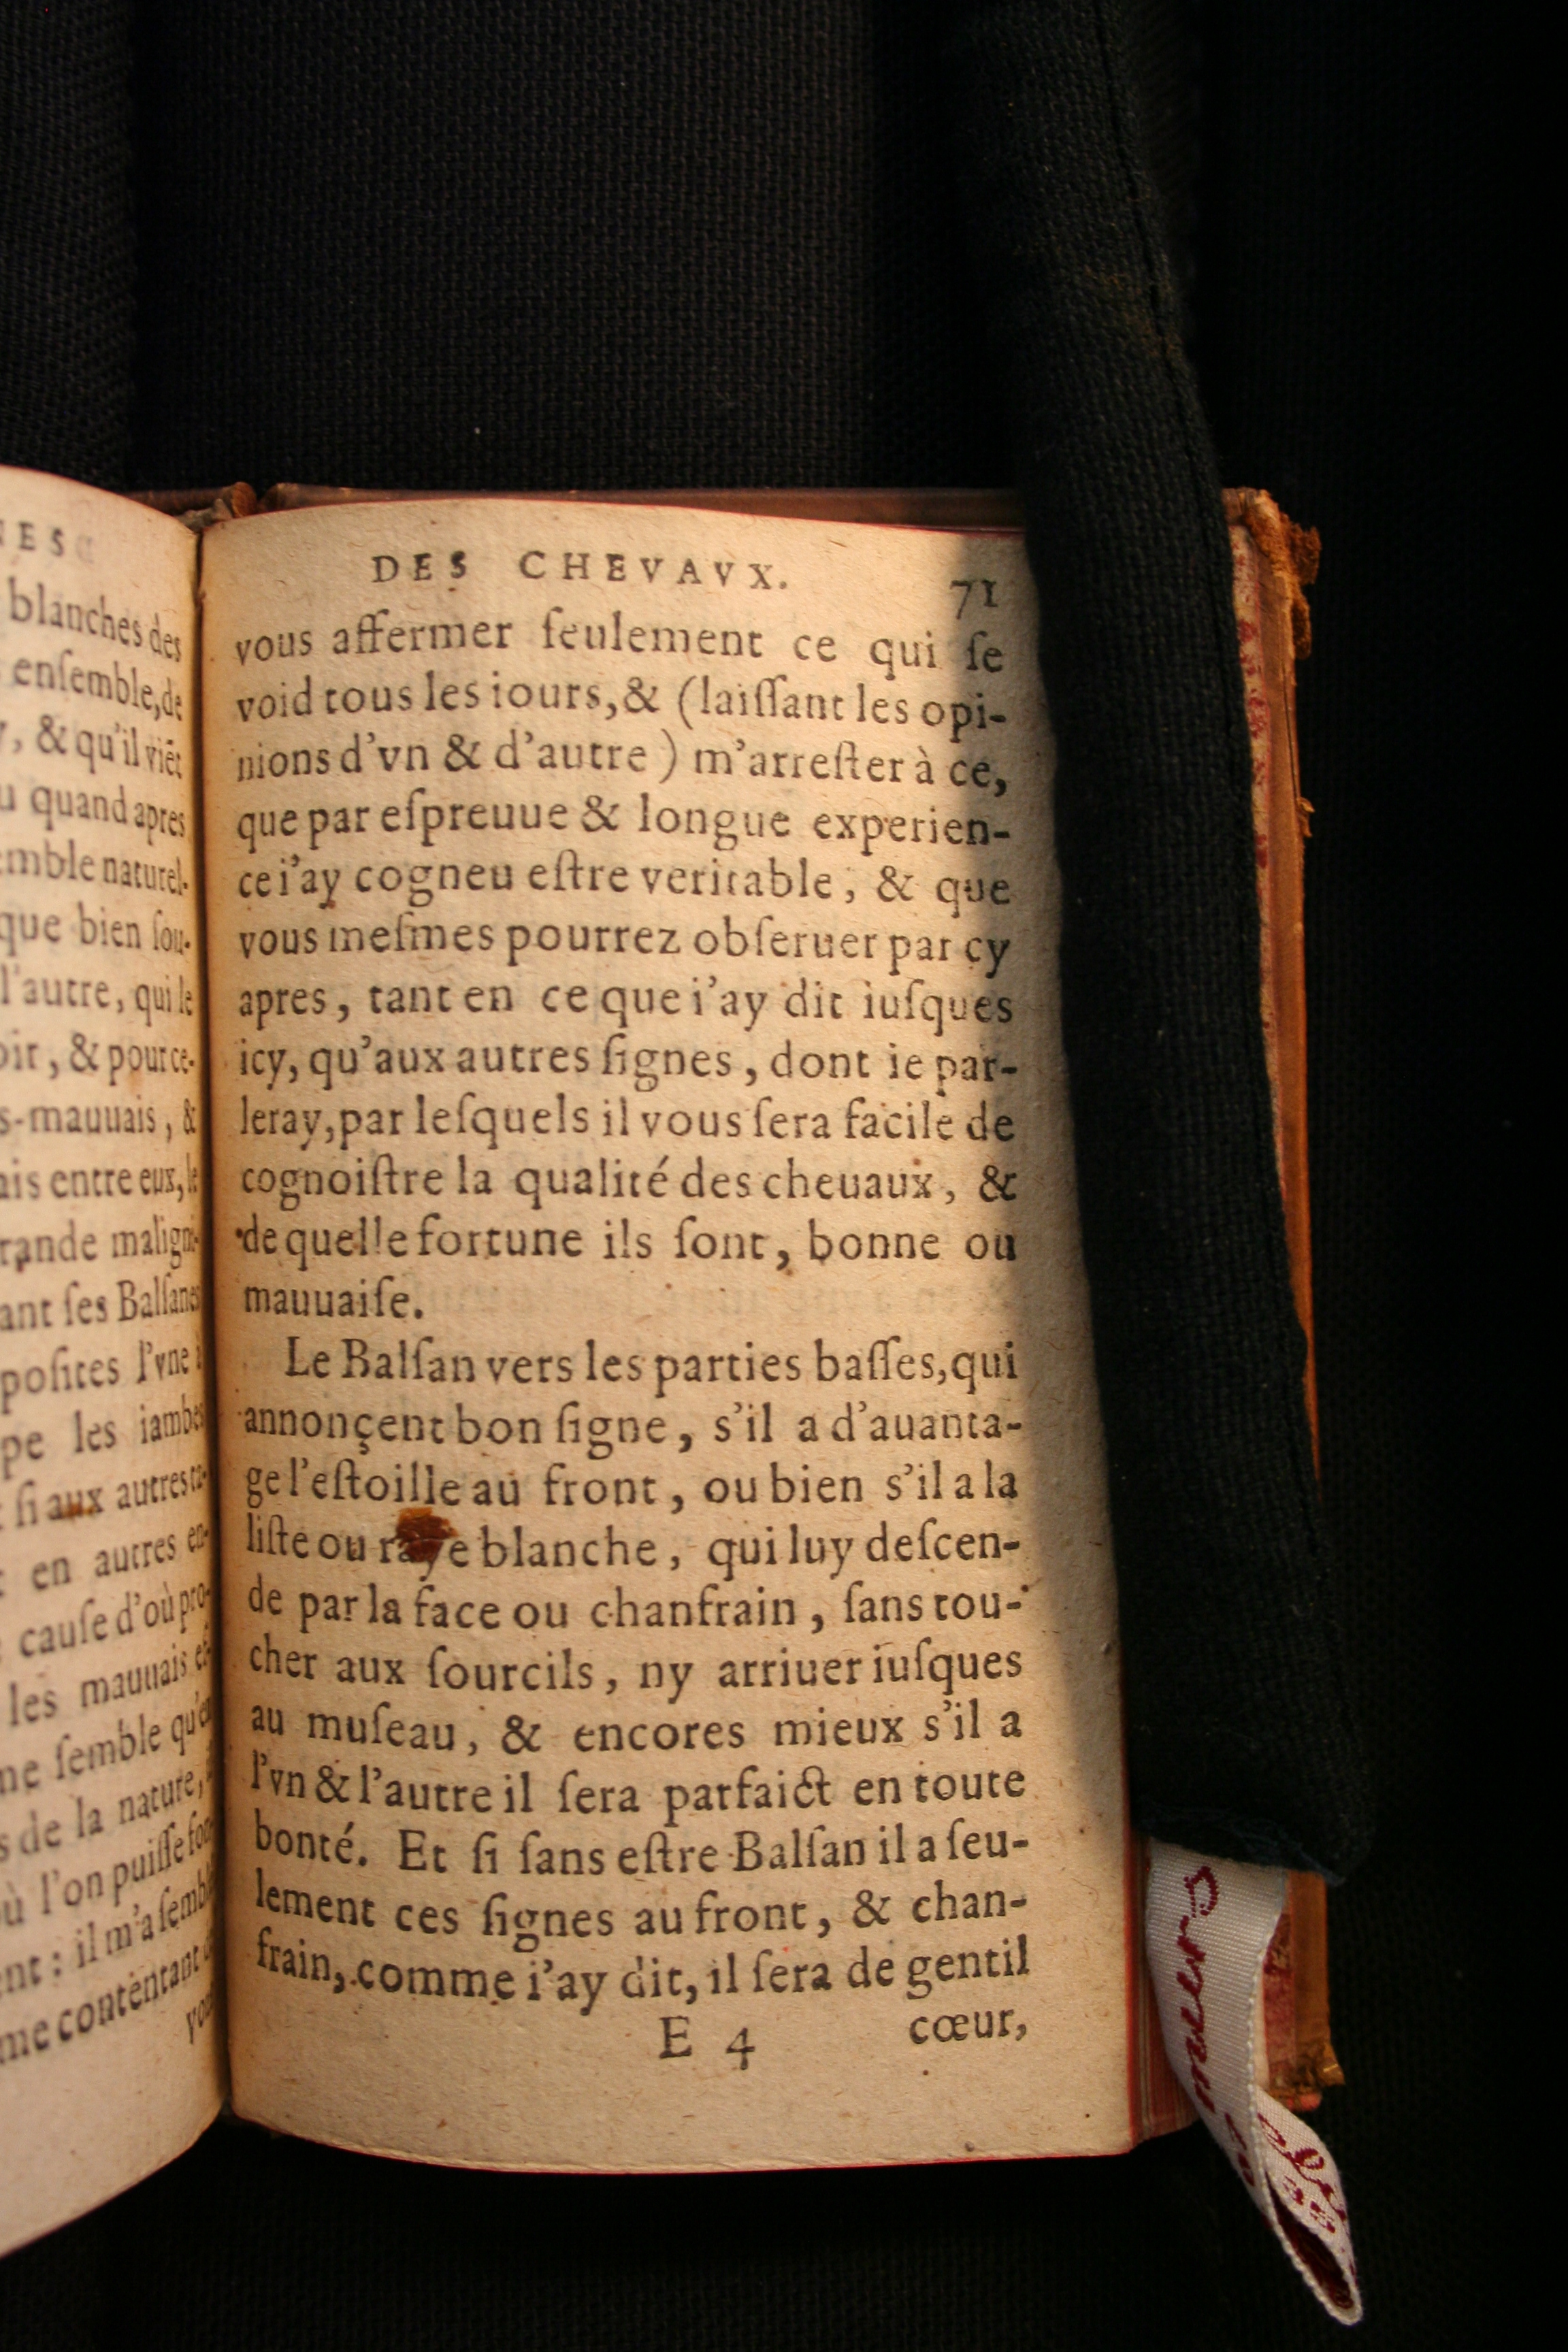 NES
blanches des
ensemble, de
, & qu'il viẽt
quand apres
emble naturel-
que bien sou-
l'autre, qui le
oit, & pour ce-
s-mauuais, &
ais entre eux, le
rande maligni-
ant ses Balsanes
posites l'vne à
pe les iambes
si aux autres
en autres en-
cause d'où pro-
les mauuais
ne semble qu'en
s de la nature,
où l'on puisse
ent : il m'a semblé
me contentant
DES CHEVAVX. 71
vous affermer ſeulement ce qui ſe
void tous les iours, & (laiſſant les opi-
nions d'vn & d'autre ) m'arreſter à ce,
que par eſpreuue & longue experien-
ce i'ay cogneu eſtre veritable, & que
vous meſmes pourrez obſeruer par cy
apres, tant en ce que i'ay dit iuſques
icy, qu'aux autres ſignes, dont ie par-
leray, par leſquels il vous ſera facile de
cognoiſtre la qualité des cheuaux, &
de quelle fortune ils ſont, bonne ou
mauuaiſe.
Le Balſan vers les parties baſſes, qui
annonçent bon ſigne, s'il a d'auanta-
ge l'eſtoille au front, ou bien s'il a la
liſte ou raye blanche, qui luy deſcen-
de par la face ou chanfrain, ſans tou-
cher aux ſourcils, ny arriuer iuſques
au muſeau, & encores mieux s'il a
l'vn & l'autre il ſera parfaict en toute
bonté. Et ſi ſans eſtre Balſan il a ſeu-
lement ces ſignes au front, & chan-
frain, comme i'ay dit, il ſera de gentil
E 4 cœur,